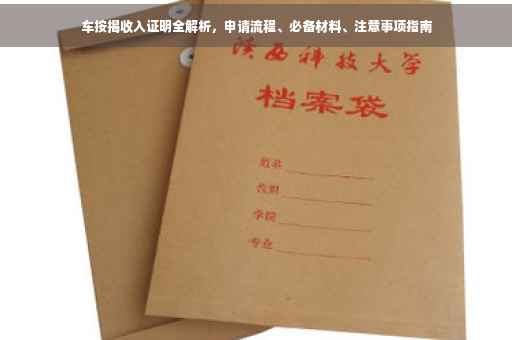 车按揭收入证明全解析，申请流程、必备材料、注意事项指南
陕西科技大学
档案袋
姓名
教职
学院
专业